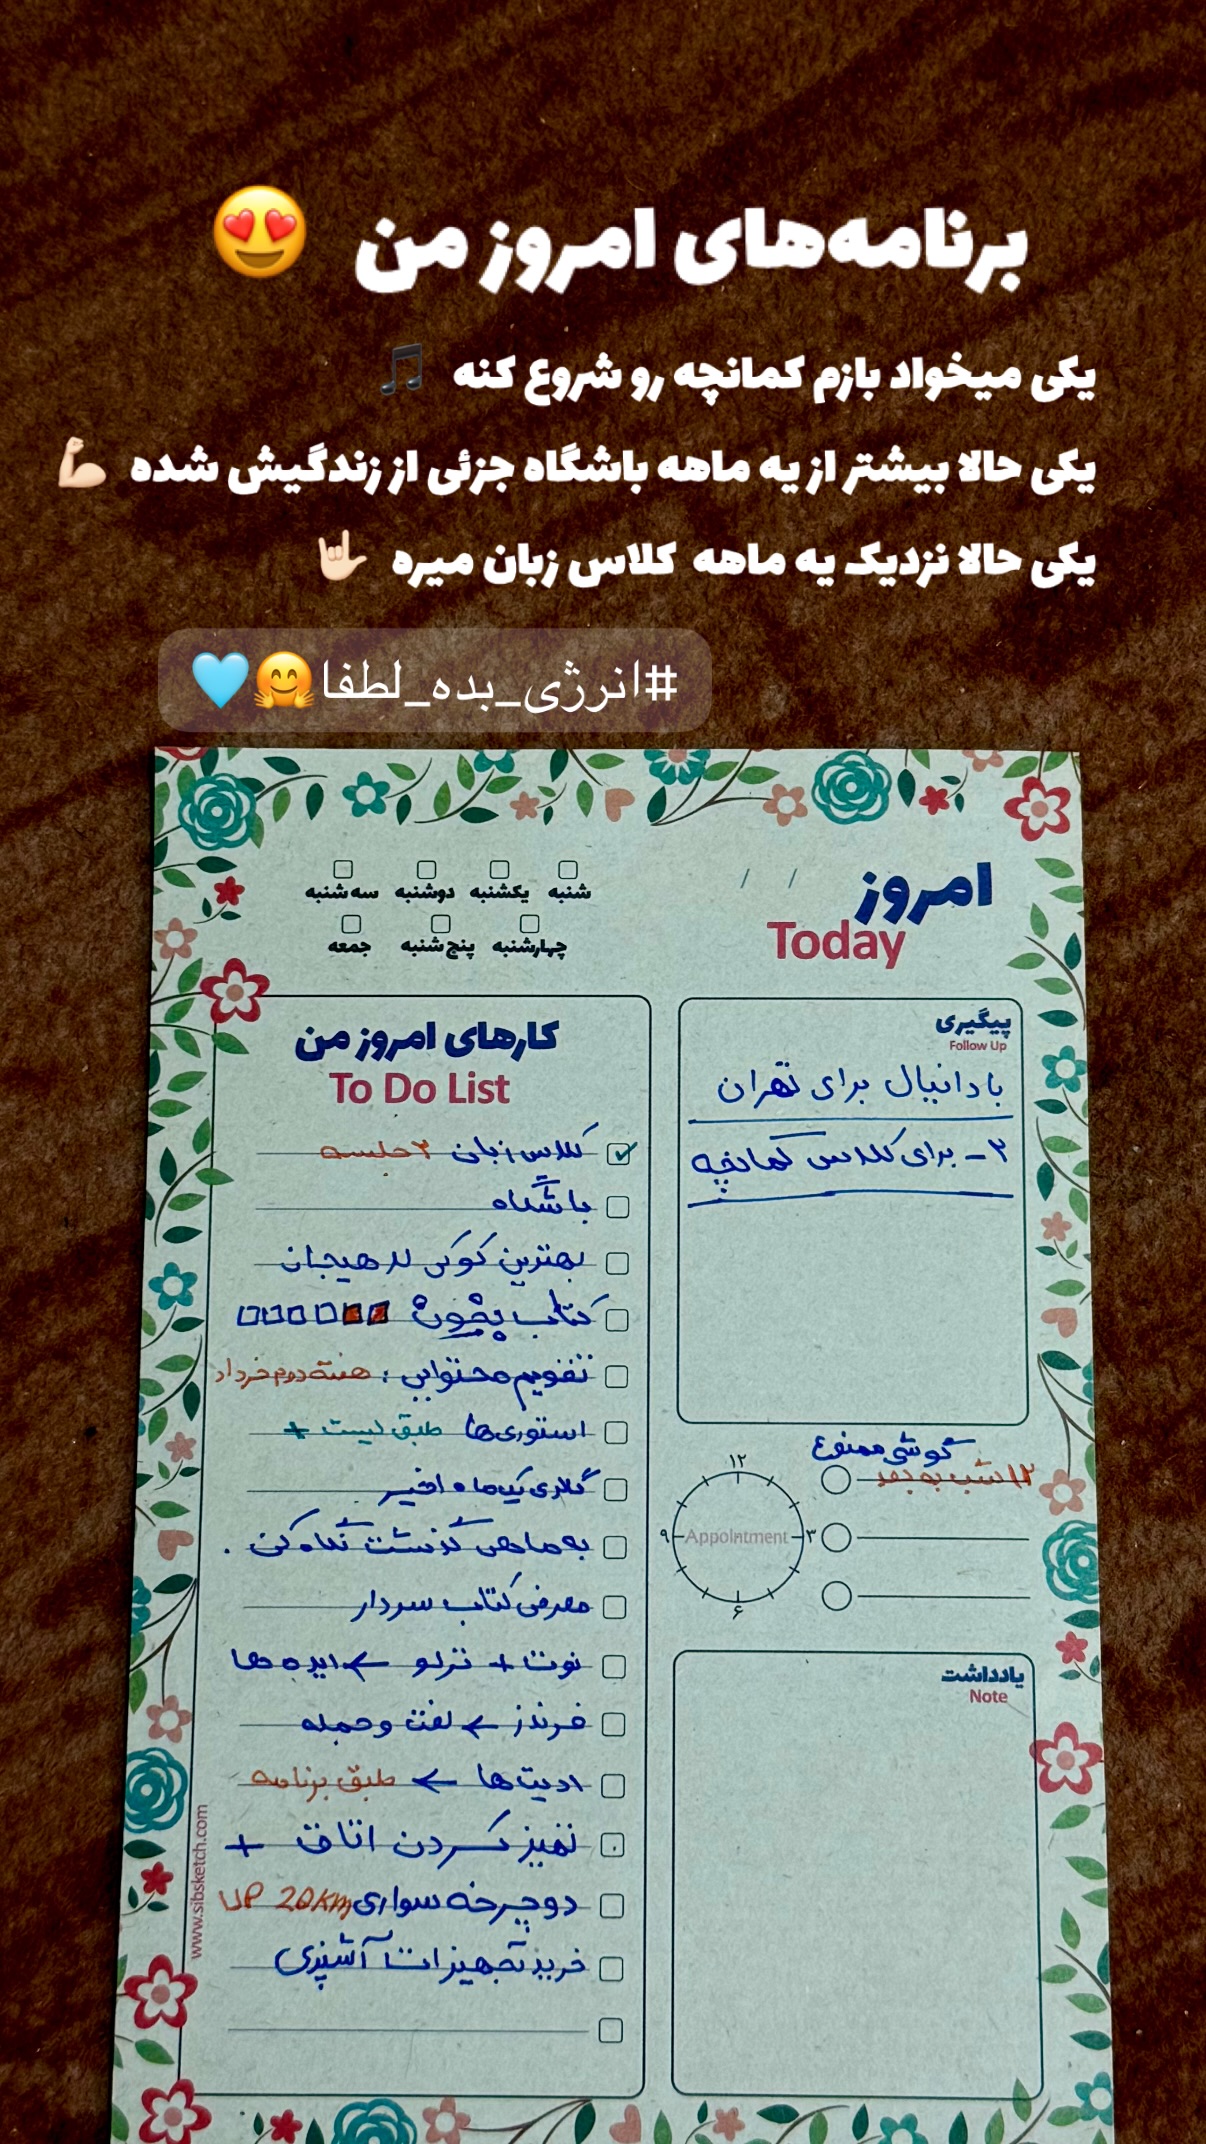 برنامه‌های امروز من 😍
یکی میخواد بازم کمانچه رو شروع کنه 🎵
یکی حالا بیشتر از یه ماهه باشگاه جزئی از زندگیش شده 💪🏻
یکی حالا نزدیک یه ماهه کلاس زبان میره 🤟🏻
#انرژی_بده_لطفا🤗🩵
امروز
Today
/ /
شنبه یکشنبه دوشنبه سه شنبه
چهارشنبه پنج شنبه جمعه
پیگیری
Follow Up
با دانیال برای تهران
۲- برای کلاس کمانچه
کارهای امروز من
To Do List
کلاس زبان ۲ جلسه
باشگاه
بهترین کوکی لاهیجان
کتاب بخون
تقویم محتوایی : هفته دوم خرداد
استوری‌ها طبق لیست +
گلاری یک ماه اخیر
به ماهی گذشت نگاه کن .
معرفی کتاب سردار
نوت + ترلو ← ایده ها
فرندز ← لغت و جمله
ادیت‌ها ← طبق برنامه
تمیز کردن اتاق +
دوچرخه سواری UP 20km
خرید تجهیزات آشپزی
گوشی ممنوع
۱۲ شب به بعد
۱۲
۳
۶
۹
Appointment
یادداشت
Note
www.sibsketch.com